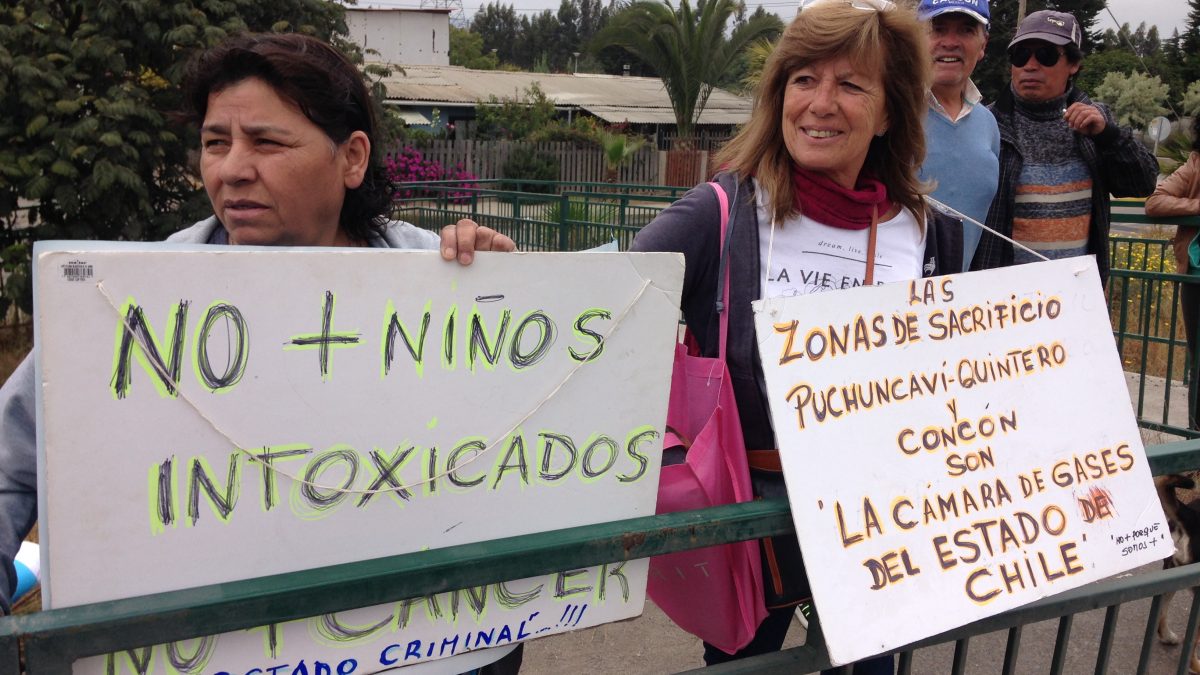 NO + NIÑOS
INTOXICADOS
NO + CANCER
ESTADO CRIMINAL"...!!!
dream. live.
LA VIE EN
LAS
ZONAS DE SACRIFICIO
PUCHUNCAVÍ-QUINTERO
Y
CONCÓN
SON
'LA CÁMARA DE GASES
DEL ESTADO DE
CHILE'
'NO + PORQUE
SOMOS +'